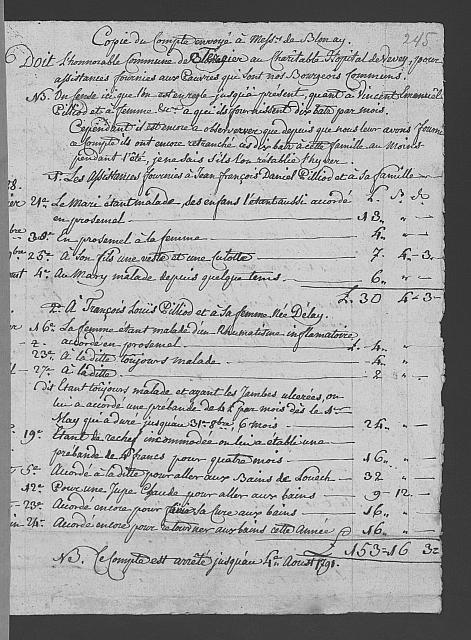 245
Copie du Compte envoyé à Mess.rs de Blonay.
Doit l'honnorable Commune de St Légier au Charitable Hopital de Vevey, pour
assistances fournies aux Pauvres qui sont nos Bourgeois Communs.
NB. On pense ici que l'on est en regle jusqu'à present, quant à Vincent Emanuel
Pilliod et à femme &c. à qui ils fournissent dix batz par mois.
Cependant il est encore à observer que depuis que nous leur avons fourni
ce compte ils ont encore retranché ces dix batz à cette famille au Moins
pendant l'été, je ne sais s'ils l'on rétabli l'hyver.
1.o Les Assistances fournies à Jean François Daniel Pilliod et à Sa famille
21e Le Mari étant malade, ses enfans l'étant aussi accordé L. S. d.
en prosemel — 13 " —
bre 3e En prosemel à la femme — 4 " —
26e À son fils une veste et une culotte — 7 4 3
4e Au Mary malade depuis quelque tems — 6 " —
L. 30 4 3
2.o À François Louïs Pilliod et à sa femme Née Délay.
16e La femme étant malade d'un Rhumatisme inflamatoire
accordé en prosemel — L. 4 "
23e À la ditte toujours malade — 4 "
27e À la ditte — 2 "
Etant toujours malade et ayant les Jambes ulcerées, on
lui a accordé une prebande de 4 L par mois dès le 4e
May qui a duré jusqu'au 31e 8bre, 6 mois — 24 "
19e Etant de rachef incommodée on lui a établi une
prébande de 4 francs pour quatre mois — 16 "
5e Accordé à la ditte pour aller aux Bains de Louech — 32 "
12e Pour une Jupe Chaude pour aller aux bains — 9 12
23e Accordé encore pour faire sa Cure aux bains — 16 "
24e Accordé encore pour retourner aux bains cette Année — 16 "
L 153 16 3
NB. Ce Compte est arreté jusqu'au 4e Aoust 1791.